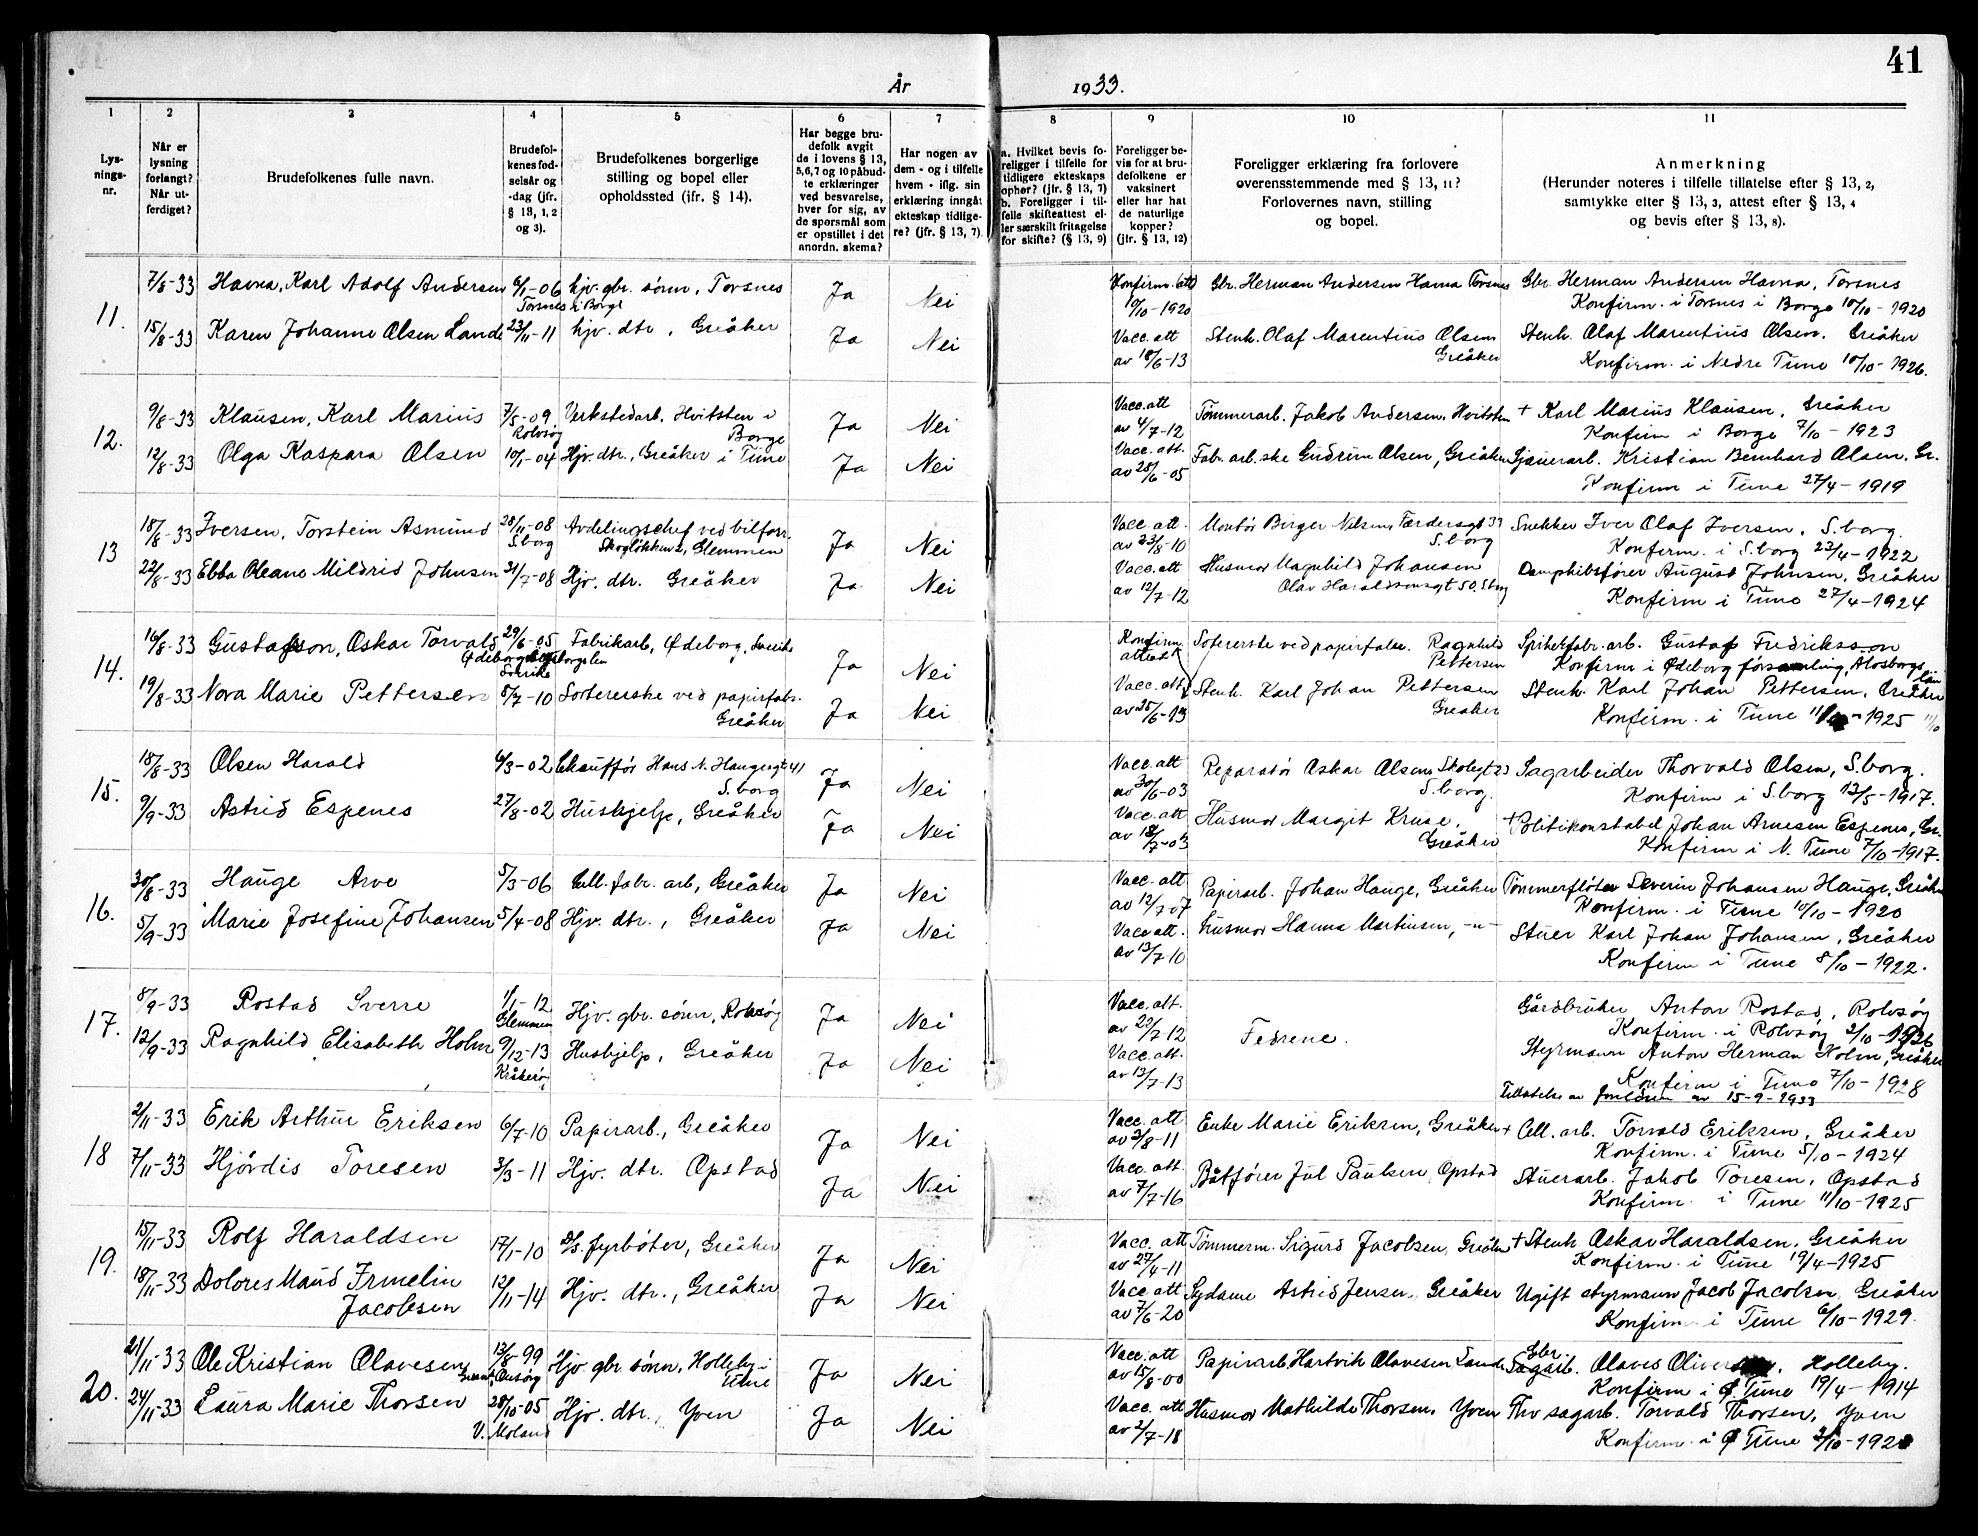 41
År 1933.
1 2 3 4 5 6 7 8 9 10 11
Lys-
nings-
nr.
Når er
lysning
forlangt?
Når ut-
ferdiget?
Brudefolkenes fulle navn.
Brudefol-
kenes fød-
selsår og
-dag (jfr.
§ 13, 1, 2
og 3).
Brudefolkenes borgerlige
stilling og bopel eller
opholdssted (jfr. § 14).
Har begge bru-
defolk avgit
de i lovens § 13,
5,6,7 og 10 påbud-
te erklæringer
ved besvarelse,
hver for sig, av
de spørsmål som
er opstillet i det
anordn. skema?
Har nogen av
dem - og i tilfelle
hvem - iflg. sin
erklæring inngått
ekteskap tidlige-
re? (jfr. § 13, 7)
a. Hvilket bevis fo-
religger i tilfelle for
tidligere ekteskaps
ophør? (jfr. § 13, 7)
b. Foreligger i til-
felle skifteattest el-
ler særskilt fritagelse
for skifte? (§ 13, 9)
Foreligger be-
vis for at bru-
defolkene er
vaksinert
eller har hat
de naturlige
kopper?
(jfr. § 13, 12)
Foreligger erklæring fra forlovere
overensstemmende med § 13, 11?
Forlovernes navn, stilling
og bopel.
Anmerkning
(Herunder noteres i tilfelle tillatelse efter § 13, 2,
samtykke efter § 13, 3, attest efter § 13, 4
og bevis efter § 13, 8).
11.
7/8-33 Havna, Karl Adolf Andersen 6/1-06 hjv. gbr. sønn, Torsnes Ja Nei Konfirm. att Gbr. Herman Andersen Havna Torsnes Gbr. Herman Andersen Havna, Torsnes
Torsnes i Borge 10/10-1920 Konfirm. i Torsnes i Borge 10/10-1920
15/8-33 Karen Johanne Olsen Lande 23/11-11 hjv. dtr, Greåker Ja Nei Vacc. att Stenh. Olaf Marentius Olsen Stenh. Olaf Marentius Olsen. Greåker
av 18/6-13 Greåker Konfirm. i Nedre Tune 10/10-1926.
12.
9/8-33 Klausen, Karl Marius 7/5-09 Verkstedarb. Hvitsten i Ja Nei Vacc. att Tømmerarb. Jakob Andersen, Hvitsten + Karl Marius Klausen, Greåker
Rolvsøy Borge av 4/7-12 Konfirm i Borge 7/10-1923
12/8-33 Olga Kaspara Olsen 10/1-04 Hjv. dtr., Greåker i Tune Ja Nei Vacc. att. Fabr. arb.ske Gudrun Olsen, Greåker Sjauerarb. Kristian Bernhard Olsen, Gr.
av 25/6-05 Konfirm i Tune 27/4-1919
13
18/8-33 Iversen, Torstein Asmund 28/11-08 Avdelingschef ved bilforr. Ja Nei Vacc. att. Montør Birger Nilsen, Færdersgt 33 Snekker Iver Olaf Iversen, S.borg.
S.borg Skogløkken 2, Glemmen av 23/8-10 S.borg Konfirm. i S.borg 23/4-1922
22/8-33 Ebba Oleane Mildrid Johnsen 31/7-08 Hjv. dtr. Greåker Ja Nei Vacc. att Husmor Magnhild Johansen Dampskibsfører August Johnsen, Greåker
av 12/7-12 Olav Haraldsønsgt 50, S.borg Konfirm i Tune 27/4-1924
14.
16/8-33 Gustafsson, Oskar Torvald 29/6-05 Fabrikarb, Ødeborg, Sverike Ja Nei Konfirm. Sotererske ved papirfabr. Ragnhild Spikerfabr. arb. Gustaf Fredriksson
attest Pettersen Konfirm i Ødeborg församling, Älvsborgs län
19/8-33 Nora Marie Pettersen 5/7-10 Sotererske ved papirfabr. Ja Nei Vacc. att Stenh. Karl Johan Pettersen Stenh. Karl Johan Pettersen, Greåker
Greåker av 25/6-13 Greåker Konfirm. i Tune 11/10-1925 11/10
15.
18/8-33 Olsen Harald 6/3-02 Chauffør Hans N. Haugesgt 41 Ja Nei Vacc. att Reparatør Oskar Olsen, Skolegt 23 Sagarbeider Thorvald Olsen, S.borg.
S.borg av 30/6-03 S.borg. Konfirm i S.borg 13/5-1917.
9/9-33 Astrid Espenes 27/8-02 Hushjelp, Greåker Ja Nei Vacc. att Husmor Margit Kruse, + Politikonstabel Johan Arnesen Espenes, Gr.
av 18/7-03 Greåker Konfirm i N. Tune 7/10-1917.
16.
30/8-33 Hauge Arve 5/3-06 Cell. fabr. arb, Greåker Ja Nei Vacc. att Papirarb. Johan Hauge, Greåker Tømmerfløter Severin Johansen Hauge, Greåker
av 12/7-07 Konfirm. i Tune 10/10-1920
5/9-33 Marie Josefine Johansen 5/4-08 Hjv. dtr., Greåker Ja Nei Vacc att. Husmor Hanna Martinsen, -"- Stuer Karl Johan Johansen, Greåker
av 13/7-10 Konfirm i Tune 8/10-1922.
17.
8/9-33 Rostad Sverre 1/1-12 Hjv. gbr. sønn, Rolvsøy Ja Nei Vacc. att. Fedrene. Gårdbruker Anton Rostad, Rolvsøy
Glemmen av 23/7-12 Konfirm. i Rolvsøy 3/10-1926
12/9-33 Ragnhild Elisabeth Holm 9/12-13 Hushjelp, Greåker Ja Nei Vacc. att. Styrmann Anton Herman Holm, Greåker
Kråkerøy av 13/7-13 Konfirm i Tune 7/10-1928
Tillatelse av 15-9-1933
18
2/11-33 Erik Arthur Eriksen 6/7-10 Papirarb., Greåker Ja Nei Vacc. att Enke Marie Eriksen, Greåker + Cell. arb. Torvald Eriksen, Greåker
av 3/8-11 Konfirm. i Tune 5/10-1924
7/11-33 Hjördis Toresen 3/3-11 Hjv. dtr. Opstad Ja Nei Vacc. att. Båtfører Jul Paulsen, Opstad Stuerarb. Jakob Toresen, Opstad
av 7/7-16 Konfirm. i Tune 11/10-1925
19.
15/11-33 Rolf Haraldsen 17/1-10 D/s. fyrbøter, Greåker Ja Nei Vacc. att Tømmerm. Sigurd Jacobsen, Greåker + Stenh Oskar Haraldsen, Greåker
av 27/4-11 Konfirm. i Tune 19/4-1925
18/11-33 Dolores Maud Irmelin 12/11-14 Hjv. dtr., Greåker Ja Nei Vacc. att Sydame Astrid Jensen, Greåker Ugift styrmann Jacob Jacobsen, Greåker
Jacobsen av 7/6-20 Konfirm. i Tune 6/10-1929.
20.
21/11-33 Ole Kristian Olavesen 13/8-99 Hjv. gbr sønn, Holleby i Ja Nei Vacc. att Papirarb. Hartvik Olavesen Lande Gbr. Sagarb. Olaves Oliversen, Holleby.
Onsøy Tune av 15/8-00 Konfirm i Ø. Tune 19/4-1914
24/11-33 Laura Marie Thorsen 28/10-05 Hjv. dtr., Yven Ja Nei Vacc. att Husmor Mathilde Thorsen, Yven Fhv sagarb. Torvald Thorsen, Yven
V. Moland av 2/7-18 Konfirm. i Ø Tune 3/10-192